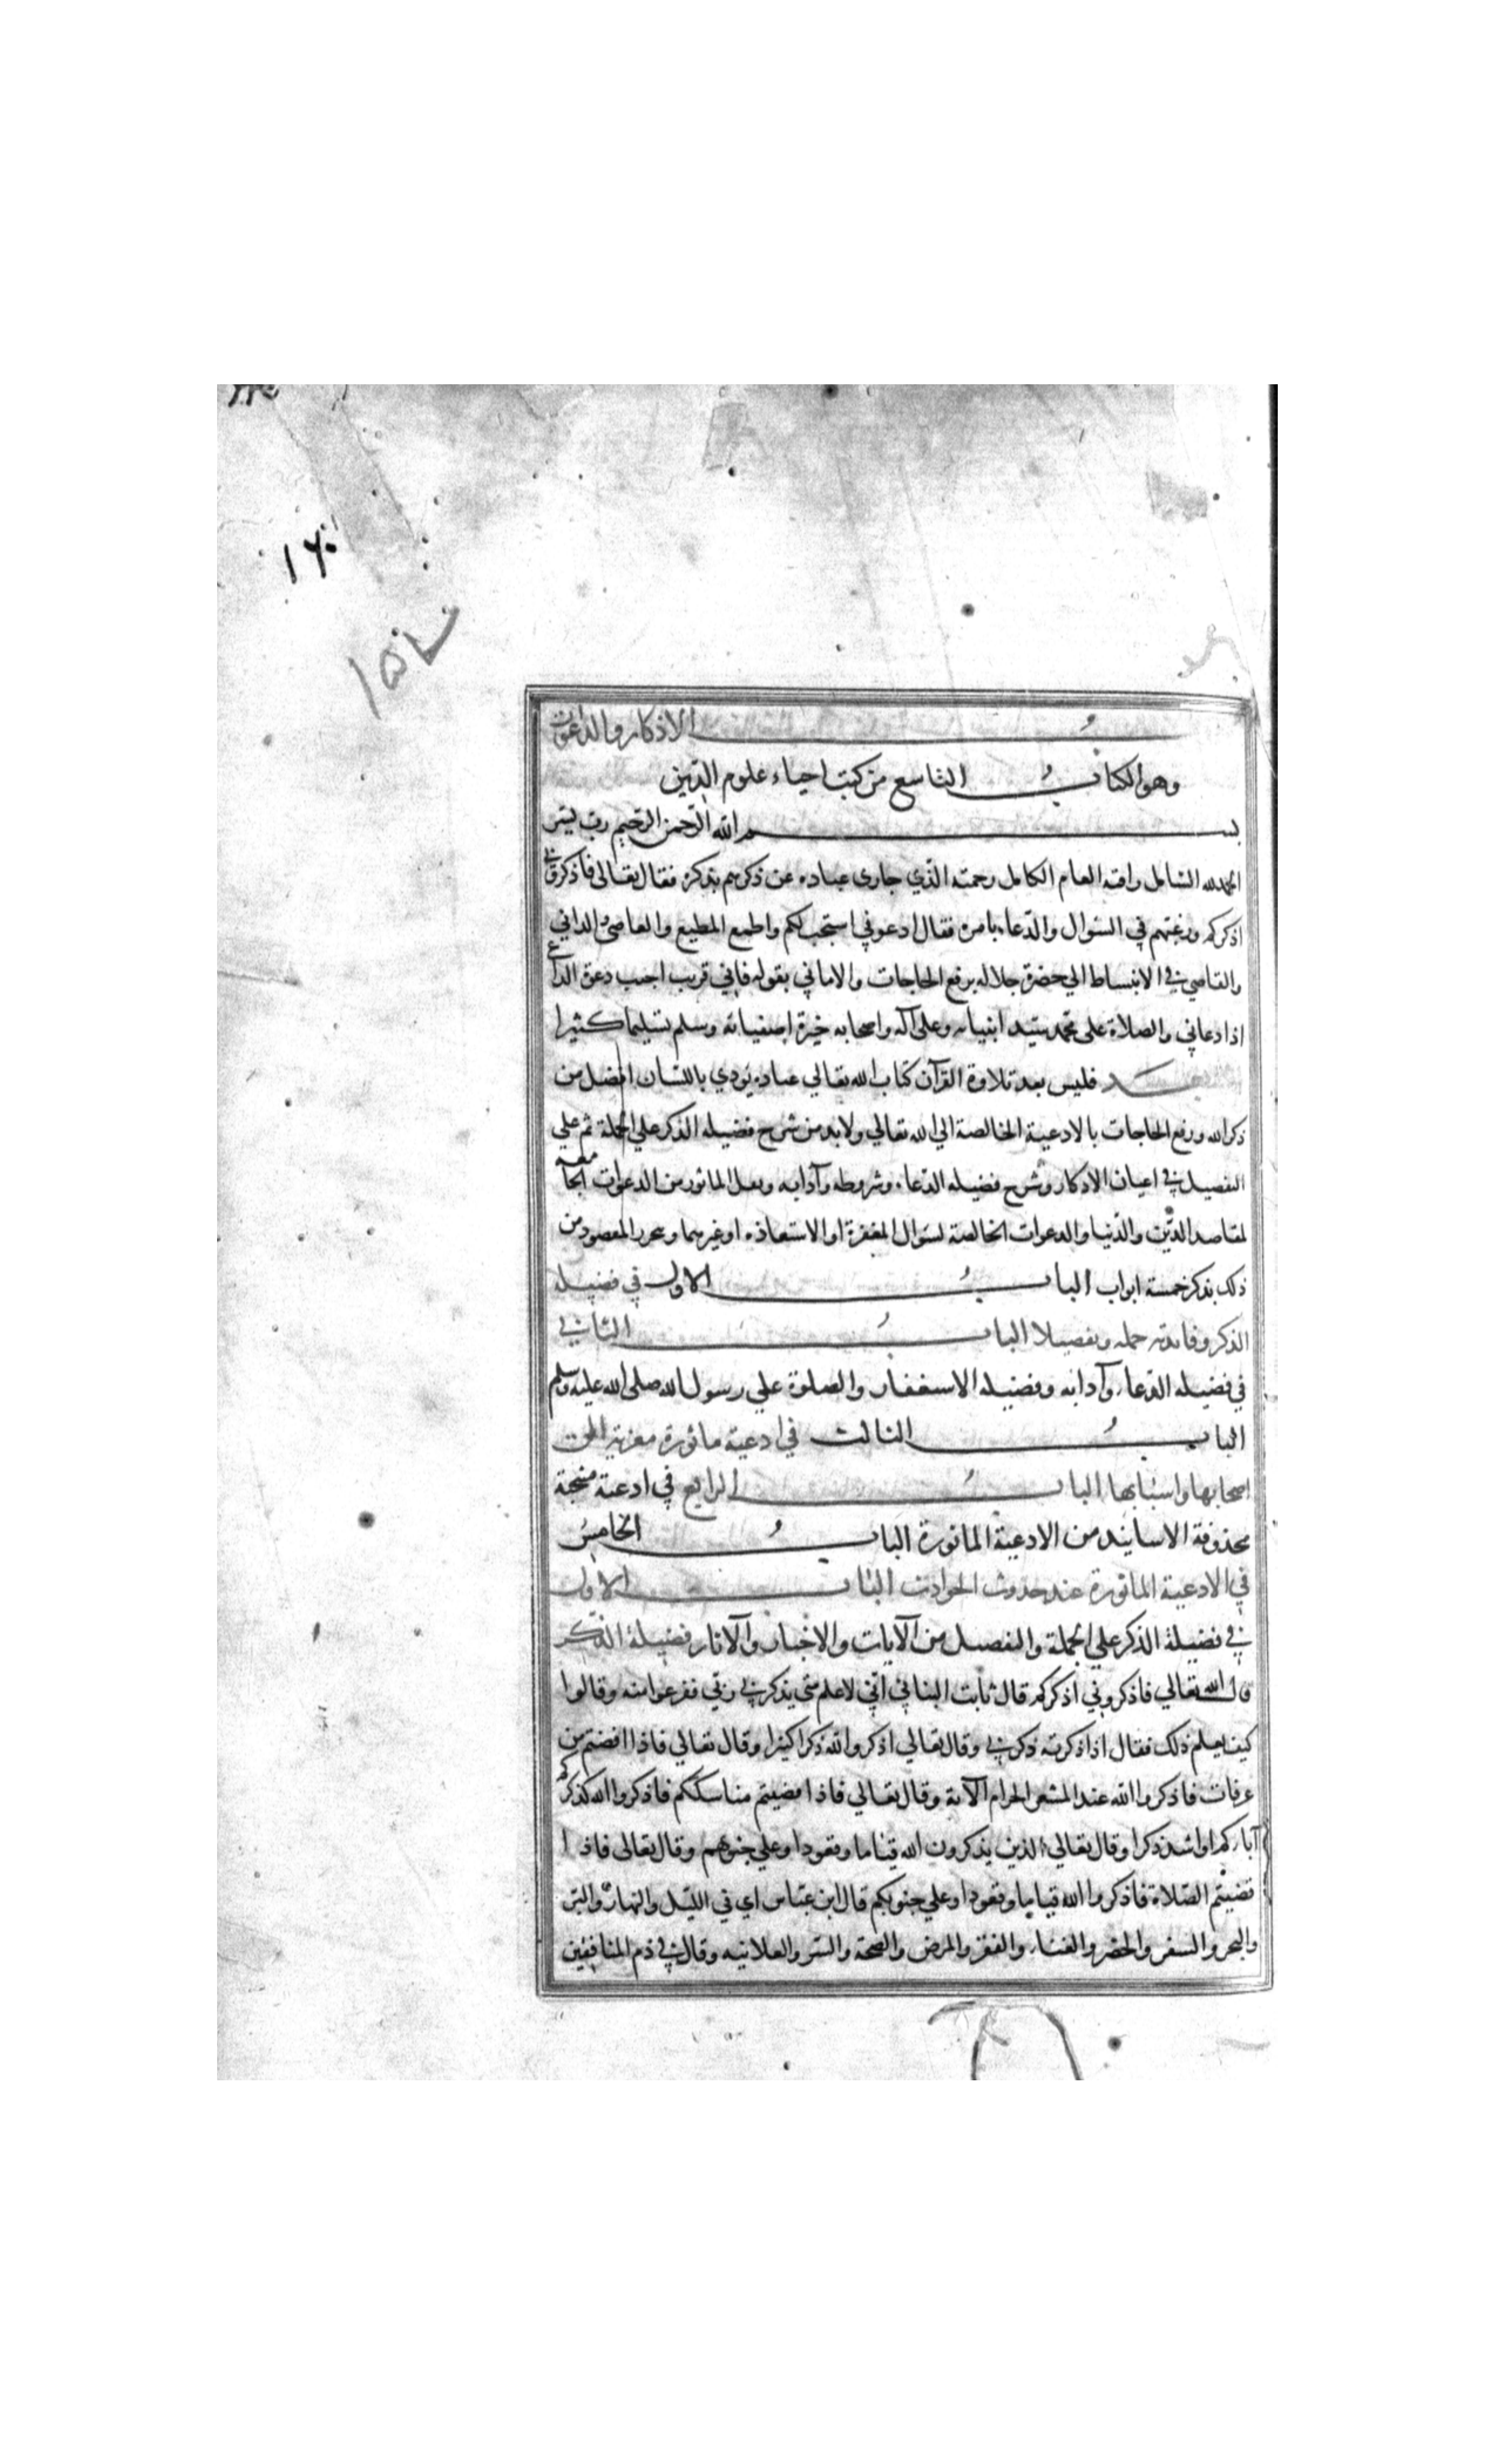 ١٦٠
الاذكار والدعوات
وهو الكتاب التاسع من كتب احياء علوم الدين
بسم الله الرحمن الرحيم رب يسر
الحمدلله الشامل رافته العام الكامل رحمته الذي جازى عباده عن ذكرهم بذكره فقال تعالى فاذكروني
اذكركم ورغبتهم في السوال والدعاء بامره فقال ادعوني استجب لكم واطمع المطيع والعاصي والداني
والقاصي في الانبساط الي حضرة جلاله برفع الحاجات والاماني بقوله فاني قريب اجيب دعوة الداع
اذا دعاني والصلاة على محمد سيد انبيائه وعلى آله واصحابه خيرة اصفيائه وسلم تسليما كثيرا
فليس بعد تلاوة القرآن كتاب الله تعالي عباده يودي باللسان افضل من
ذكر الله ورفع الحاجات بالادعية الخالصة الي الله تعالي ولابد من شرح فضيله الذكر علي الجملة ثم علي
التفصيل في اعيان الاذكار وشرح فضيله الدعاء وشروطه وآدابه ونقل الماثور من الدعوات الجامعه
لمقاصد الدين والدنيا والدعوات الخالصة لسوال المغفرة او الاستعاذه او غيرهما وتحرر المقصود من
ذلك بذكر خمسة ابواب الباب الاول في فضيله
الذكر وفايدته جمله وتفصيلا الباب الثاني
في فضيله الدعاء وآدابه وفضيله الاستغفار والصلوة علي رسول الله صلى الله عليه وسلم
الباب الثالث في ادعية ماثورة معزية الى
اصحابها واسبابها الباب الرابع في ادعية منتخبة
محذوفة الاسانيد من الادعية الماثورة الباب الخامس
في الادعية الماثورة عند حدوث الحوادث الباب الاول
في فضيلة الذكر علي الجملة والتفصيل من الآيات والاخبار والآثار فضيلة الذكر
قال الله تعالي فاذكروني اذكركم قال ثابت البناني اني لاعلم متي يذكرني ربي ففزعوا منه وقالوا
كيف تعلم ذلك فقال اذا ذكرته ذكرني وقال تعالي اذكروا الله ذكرا كثيرا وقال تعالي فاذا افضتم من
عرفات فاذكروا الله عند المشعر الحرام الآية وقال تعالي فاذا قضيتم مناسككم فاذكروا الله كذكركم
آباءكم او اشد ذكرا وقال تعالي الذين يذكرون الله قياما وقعودا وعلي جنوبهم وقال تعالى فاذا
قضيتم الصلاة فاذكروا الله قياما وقعودا وعلي جنوبكم قال ابن عباس اي في الليل والنهار والبر
والبحر والسفر والحضر والغنا والفقر والمرض والصحة والسر والعلانيه وقال في ذم المنافقين